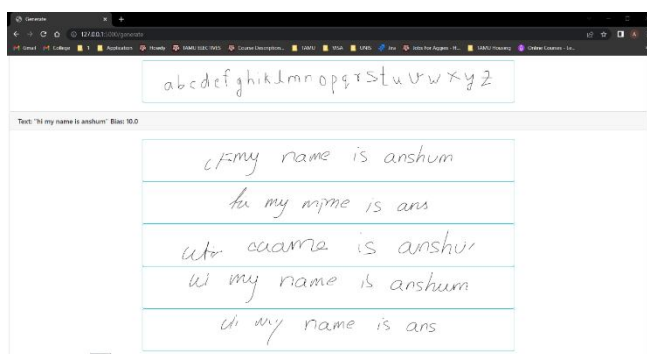 Generate
127.0.0.1:5000/generate
Gmail College 1 Application Howdy TAMU ELECTIVES Course Description... TAMU VISA UNIS Jira Jobs for Aggies - H... TAMU Housing Online Courses - Le...
a b c d e f g h i k l m n o p q r s t u v w x y z
Text: "hi my name is anshum" Bias: 10.0
my name is anshum
my is ans
is
ui my name is anshum
my name is ans